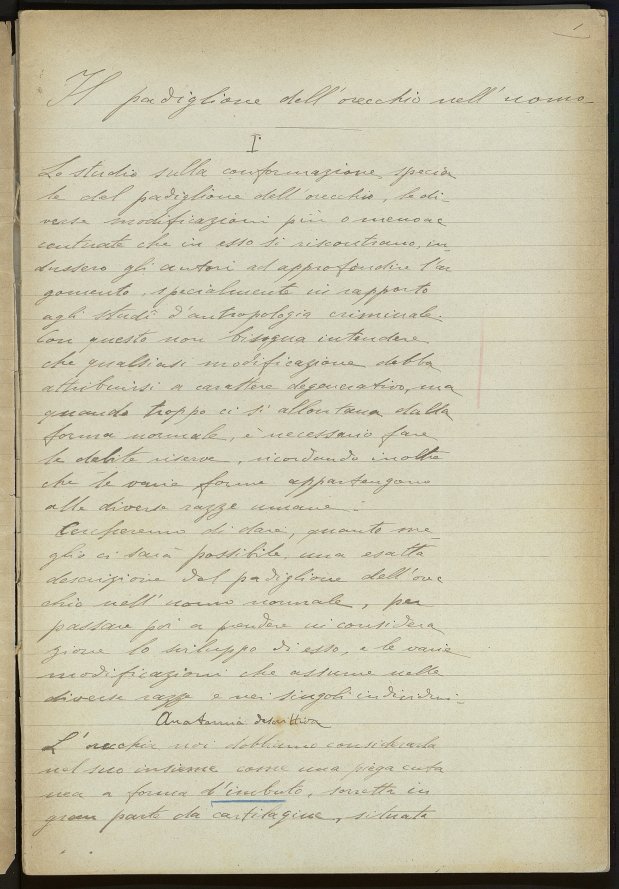 1
Il padiglione dell'orecchio nell'uomo
I
Lo studio sulla conformazione specia
le del padiglione dell'orecchio, le di-
verse modificazioni più o meno ac
centuate che in esso si riscontrano, in-
dussero gli autori ad approfondire l'ar
gomento, specialmente in rapporto
agli studi d'antropologia criminale.
Con questo non bisogna intendere
che qualsiasi modificazione debba
attribuirsi a carattere degenerativo, ma
quando troppo ci si allontana dalla
forma normale, è necessario fare
le debite riserve, ricordando inoltre
che le varie forme appartengono
alle diverse razze umane.
Cercheremo di dare, quanto me
glio ci sarà possibile, una esatta
descrizione del padiglione dell'orec
chio nell'uomo normale, per
passare poi a prendere in considera
zione lo sviluppo di esso, e le varie
modificazioni che assume nelle
diverse razze e nei singoli individui.
Anatomia descrittiva
L'orecchio noi dobbiamo considerarlo
nel suo insieme come una piega cuta
nea a forma d'imbuto, sorretta in
gran parte da cartilagine, situata